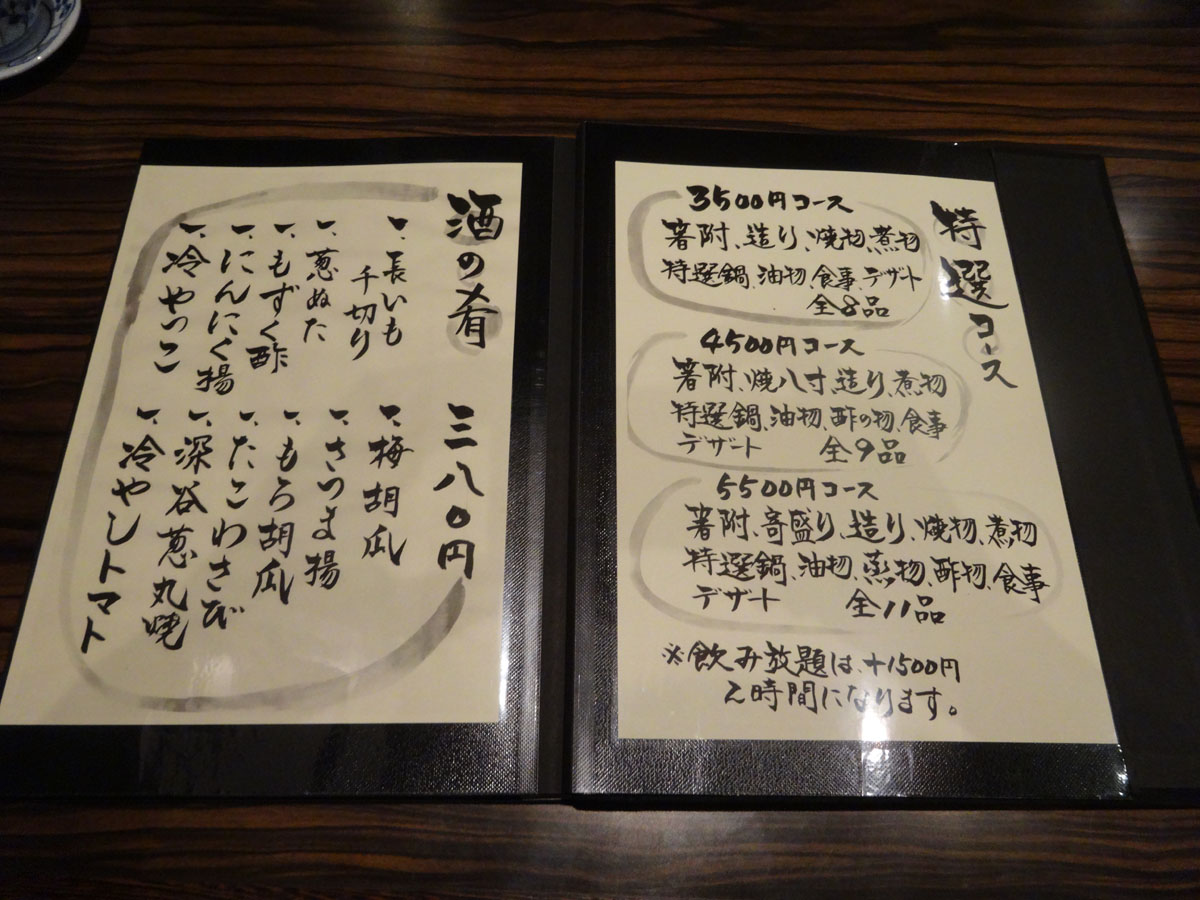 酒の肴 三八〇円
一、長いも
千切り
一、葱ぬた
一、もずく酢
一、にんにく揚
一、冷やっこ
一、梅胡瓜
一、さつま揚
一、もろ胡瓜
一、たこわさび
一、深谷葱丸焼
一、冷やしトマト
特選コース
3500円コース
箸附、造り、焼物、煮物
特選鍋、油物、食事、デザート
全8品
4500円コース
箸附、焼八寸、造り、煮物
特選鍋、油物、酢の物、食事
デザート 全9品
5500円コース
箸附、寄盛り、造り、焼物、煮物
特選鍋、油物、蒸物、酢物、食事
デザート 全11品
※飲み放題は、+1500円
2時間になります。